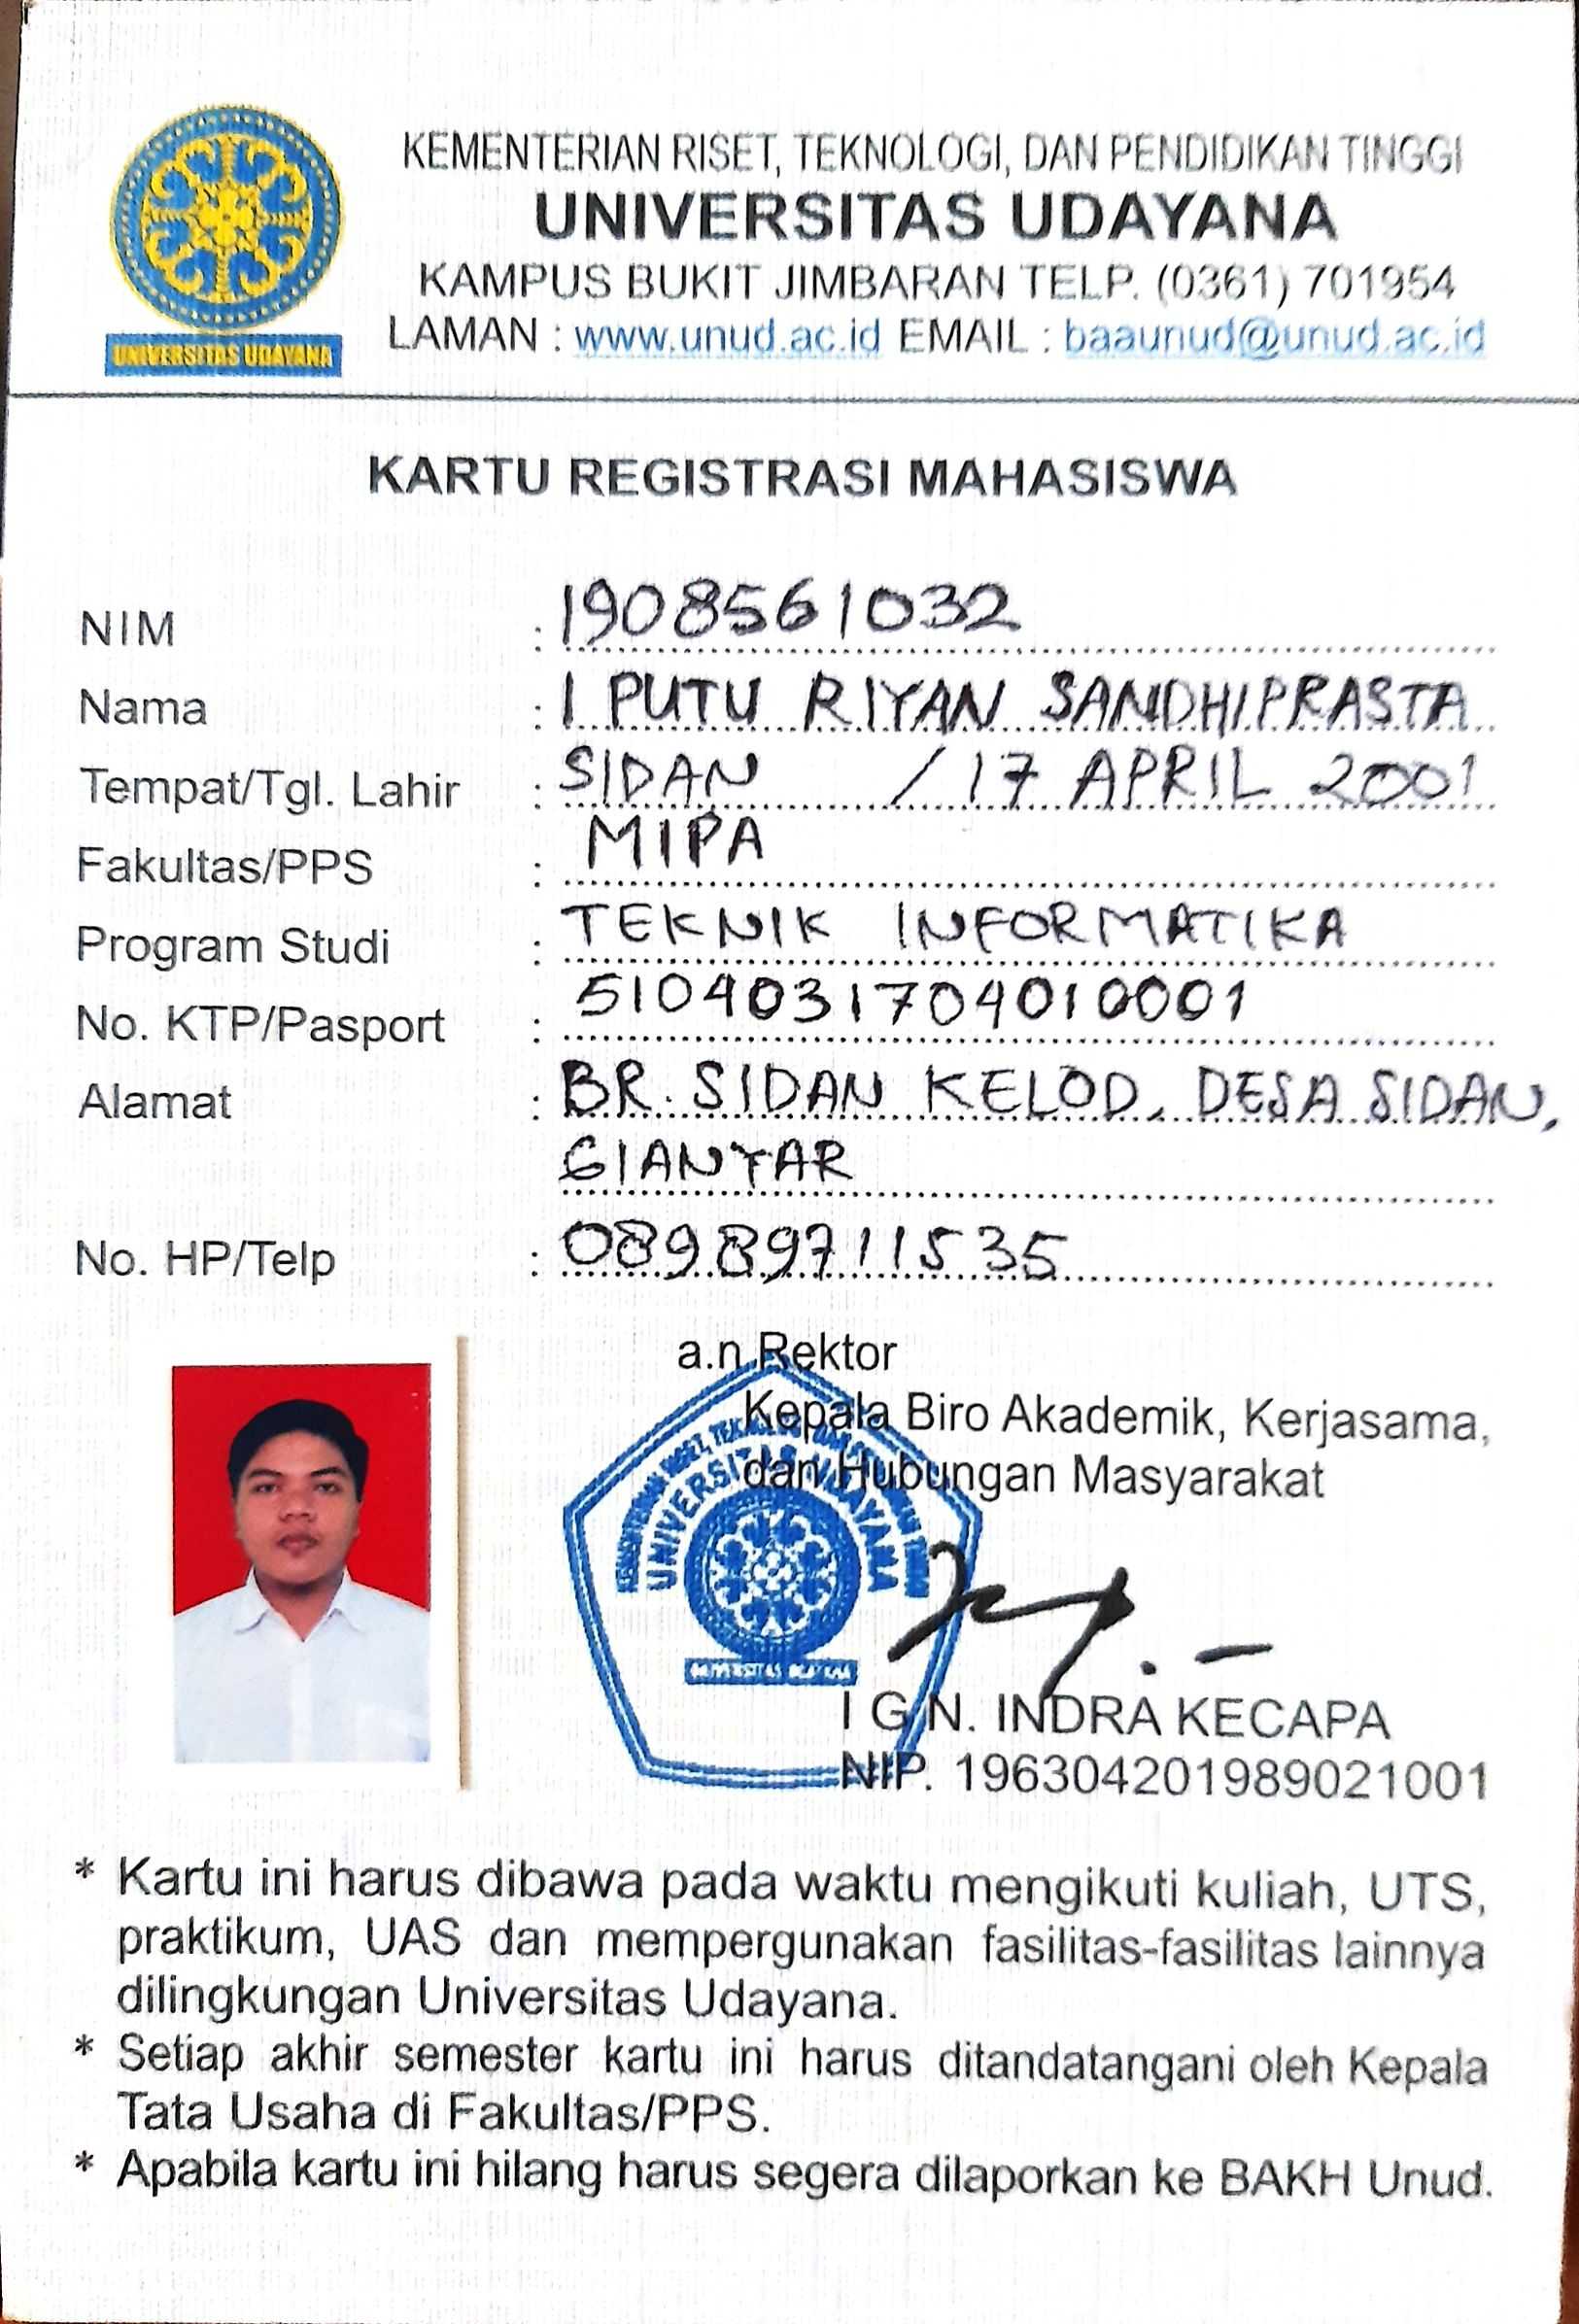 KEMENTERIAN RISET, TEKNOLOGI, DAN PENDIDIKAN TINGGI
UNIVERSITAS UDAYANA
KAMPUS BUKIT JIMBARAN TELP. (0361) 701954
LAMAN : www.unud.ac.id EMAIL : baaunud@unud.ac.id
UNIVERSITAS UDAYANA
KARTU REGISTRASI MAHASISWA
NIM : 1908561032
Nama : I PUTU RIYAN SANDHIPRASTA
Tempat/Tgl. Lahir : SIDAN / 17 APRIL 2001
Fakultas/PPS : MIPA
Program Studi : TEKNIK INFORMATIKA
No. KTP/Pasport : 5104031704010001
Alamat : BR. SIDAN KELOD, DESA SIDAN,
GIANYAR
No. HP/Telp : 08989711535
a.n Rektor
Kepala Biro Akademik, Kerjasama,
dan Hubungan Masyarakat
UNIVERSITAS UDAYANA
UNIVERSITAS UDAYANA
I G.N. INDRA KECAPA
NIP. 196304201989021001
* Kartu ini harus dibawa pada waktu mengikuti kuliah, UTS,
praktikum, UAS dan mempergunakan fasilitas-fasilitas lainnya
dilingkungan Universitas Udayana.
* Setiap akhir semester kartu ini harus ditandatangani oleh Kepala
Tata Usaha di Fakultas/PPS.
* Apabila kartu ini hilang harus segera dilaporkan ke BAKH Unud.